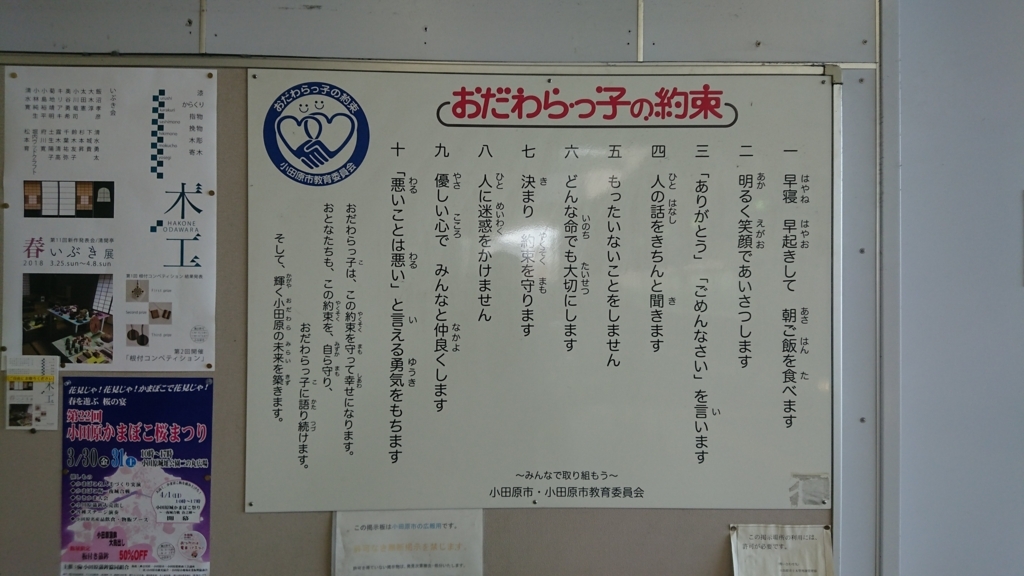 おだわらっ子の約束
一 早寝 早起きして 朝ご飯を食べます
二 明るく笑顔であいさつします
三 「ありがとう」「ごめんなさい」を言います
四 人の話をきちんと聞きます
五 もったいないことをしません
六 どんな命でも大切にします
七 決まり 約束を守ります
八 人に迷惑をかけません
九 優しい心で みんなと仲良くします
十 「悪いことは悪い」と言える勇気をもちます
おだわらっ子は、この約束を守って幸せになります。
おとなたちも、この約束を、自ら守り、
おだわらっ子に語り続けます。
そして、輝く小田原の未来を築きます。
〜みんなで取り組もう〜
小田原市・小田原市教育委員会
おだわらっ子の約束
小田原市教育委員会
いぶき会
漆
からくり
指物
挽物
木彫
寄木
木工
HAKONE
ODAWARA
第11回新作発表会/凛暦亭
春いぶき展
2018 3.25.sun〜4.8.sun
第2回開催
「根付コンペティション」
花見じゃ!花見じゃ!かまぼこで花見じゃ!
春を遊ぶ 桜の宴
第22回
小田原かまぼこ桜まつり
3/30金 31土
4/1(日)
50%OFF
この掲示板は小田原市の広報用です。